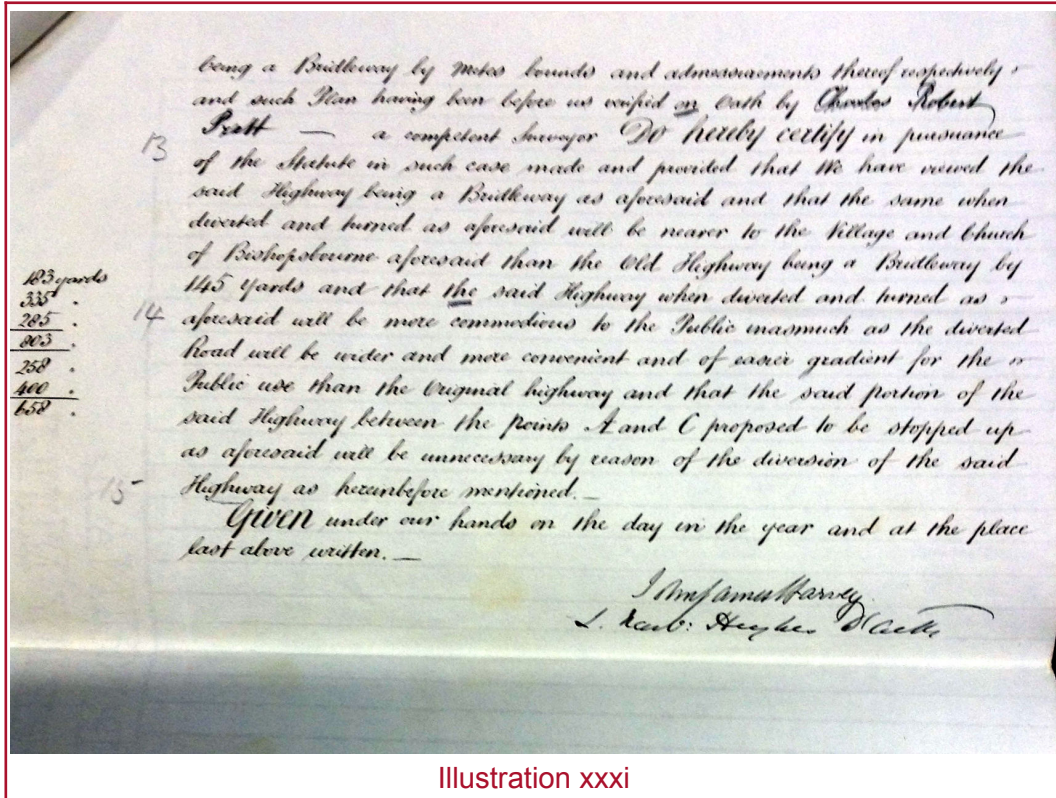 being a Bridleway by Metes bounds and admeasurements thereof respectively
and such Plan having been before us verified on Oath by Charles Robert
Pratt — a competent Surveyor Do hereby certify in pursuance
13
of the Statute in such case made and provided that We have viewed the
said Highway being a Bridleway as aforesaid and that the same when
diverted and turned as aforesaid will be nearer to the Village and Church
of Bishopsbourne aforesaid than the Old Highway being a Bridleway by
145 yards and that the said Highway when diverted and turned as
14
aforesaid will be more commodious to the Public inasmuch as the diverted
Road will be wider and more convenient and of easier gradient for the
Public use than the Original highway and that the said portion of the
said Highway between the points A and C proposed to be stopped up
as aforesaid will be unnecessary by reason of the diversion of the said
15
Highway as hereinbefore mentioned. —
Given under our hands on the day in the year and at the place
last above written. —
183 yards
335 "
285 "
803 "
258 "
400 "
658 "
John James Harvey
Hughes
Illustration xxxi